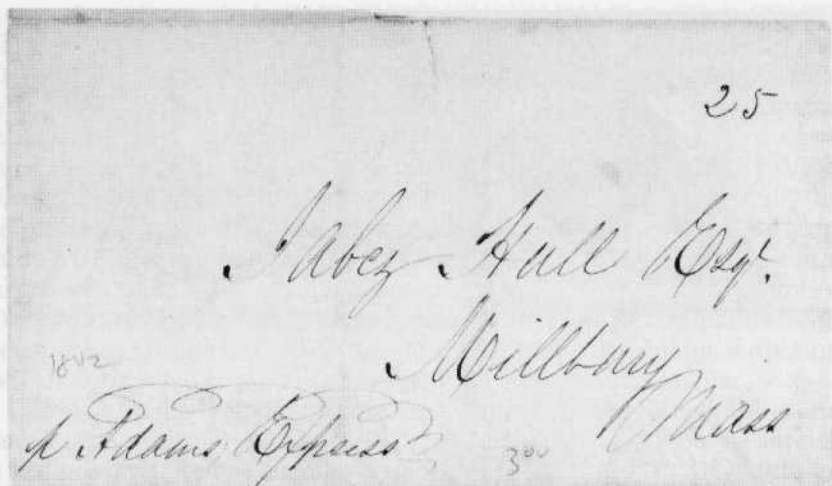 25
Jabez Hull Esqr.
Millbury
Mass
p Adams Express
300